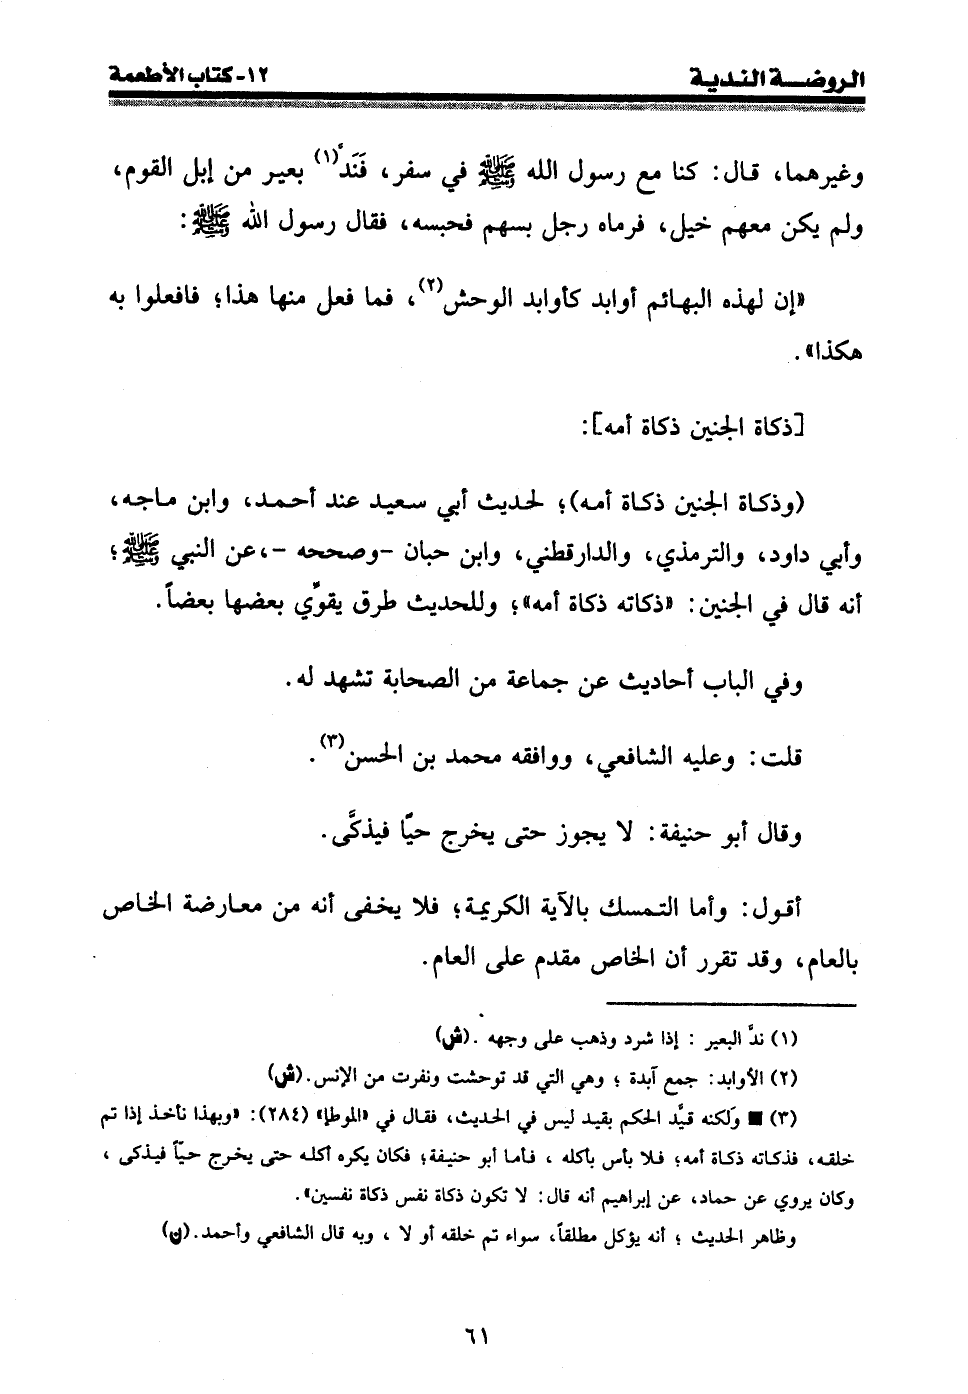 الروضــة الندية
١٢- كتاب الأطعمة
وغيرهما، قال: كنا مع رسول الله ﷺ في سفر، فَنَدَّ(١) بعير من إبل القوم،
ولم يكن معهم خيل، فرماه رجل بسهم فحبسه، فقال رسول الله ﷺ:
«إن لهذه البهائم أوابد كأوابد الوحش(٢)، فما فعل منها هذا؛ فافعلوا به
هكذا».
[ذكاة الجنين ذكاة أمه]:
(وذكاة الجنين ذكاة أمه)؛ لحديث أبي سعيد عند أحمد، وابن ماجه،
وأبي داود، والترمذي، والدارقطني، وابن حبان -وصححه -،عن النبي ﷺ؛
أنه قال في الجنين: «ذكاته ذكاة أمه»؛ وللحديث طرق يقوّي بعضها بعضاً.
وفي الباب أحاديث عن جماعة من الصحابة تشهد له.
قلت: وعليه الشافعي، ووافقه محمد بن الحسن(٣).
وقال أبو حنيفة: لا يجوز حتى يخرج حيّا فيذكَّى.
أقول: وأما التمسك بالآية الكريمة؛ فلا يخفى أنه من معارضة الخاص
بالعام، وقد تقرر أن الخاص مقدم على العام.
(١) ندَّ البعير : إذا شرد وذهب على وجهه .(ش)
(٢) الأوابد: جمع آبدة ؛ وهي التي قد توحشت ونفرت من الإنس.(ش)
(٣) ■ ولكنه قيَّد الحكم بقيد ليس في الحديث، فقال في «الموطإ» (٢٨٤): «وبهذا نأخذ إذا تم
خلقه، فذكاته ذكاة أمه؛ فلا بأس بأكله ، فأما أبو حنيفة؛ فكان يكره أكله حتى يخرج حيّاً فيذكى ،
وكان يروي عن حماد، عن إبراهيم أنه قال: لا تكون ذكاة نفس ذكاة نفسين».
وظاهر الحديث ؛ أنه يؤكل مطلقاً، سواء تم خلقه أو لا ، وبه قال الشافعي وأحمد.(ن)
٦١